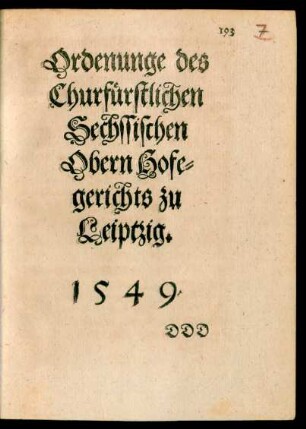 193 7
Ordenunge des
Churfürstlichen
Sechssischen
Obern Hofe-
gerichts zu
Leiptzig.
1549.
DDD